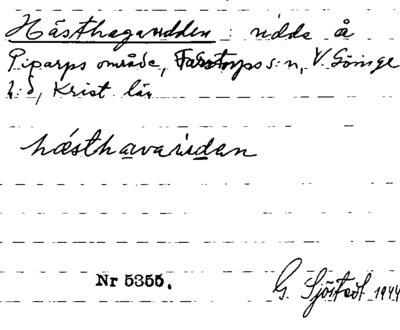 Hästhagaridden : ridde å
Piparps område, Farstorps s:n, V. Göinge
h:d, Krist län
hästhavaridan
Nr 5355.
G. Sjöstedt 1944